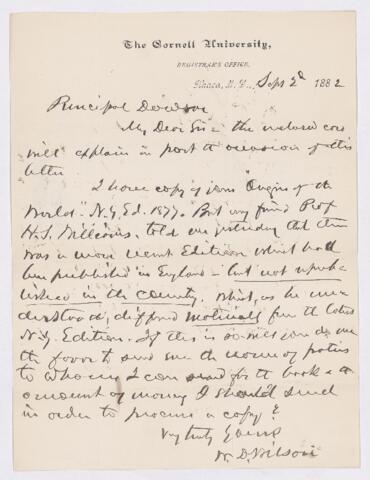 The Cornell University,
REGISTRAR'S OFFICE,
Ithaca, N. Y., Sept 2d 1882
Principal Dawson
My Dear Sir - the inclosed
will explain in part the occasion of this
letter
I have copy of your "Origin of the
World" N.Y. Ed. 1877. But my friend Prof
H. S. Williams, told me yesterday that there
was a more recent Edition which had
been published in England - but not repub-
lished in this country. which, as he un-
derstood, differed materially from the
N.Y. Edition. If this is so will you do me
the favor to send me the name of parties
to whom I can send for the book & the
amount of money I should send
in order to procure a copy?
Very truly Yours
W. D. Wilson